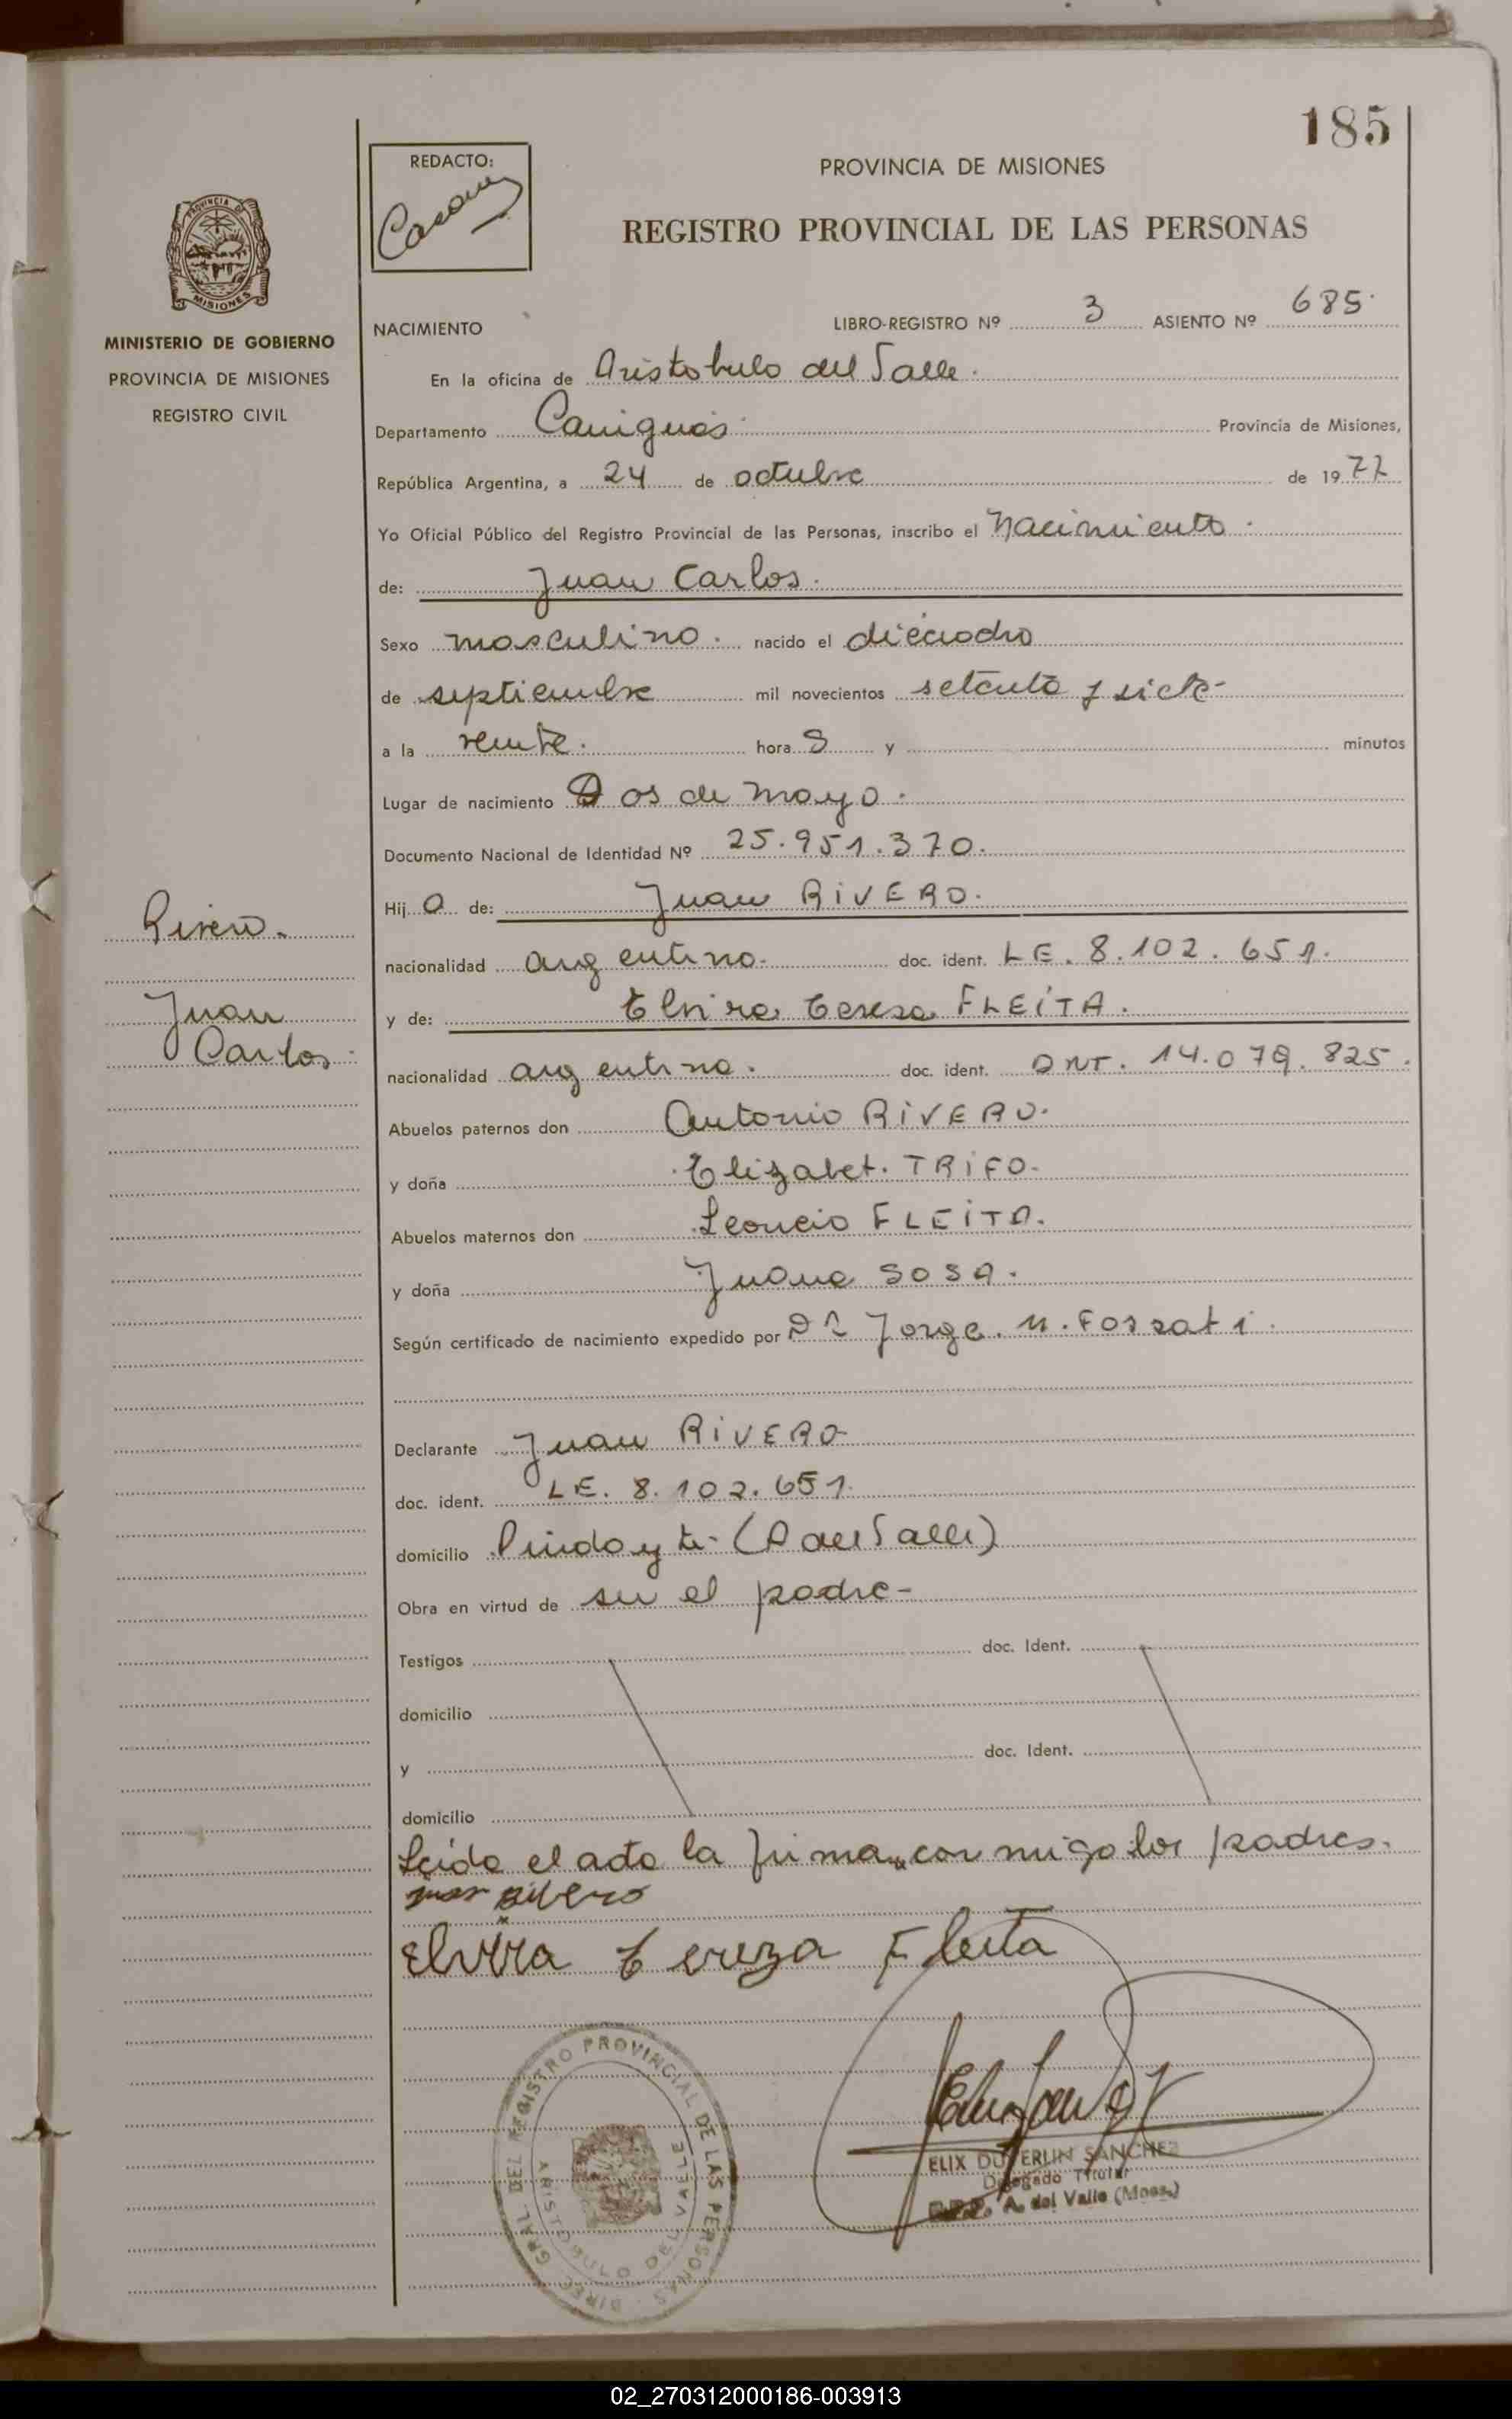 185
REDACTO:
PROVINCIA DE MISIONES
REGISTRO PROVINCIAL DE LAS PERSONAS
PROVINCIA DE
MISIONES
MINISTERIO DE GOBIERNO
PROVINCIA DE MISIONES
REGISTRO CIVIL
NACIMIENTO LIBRO-REGISTRO Nº 3 ASIENTO Nº 685
En la oficina de Aristobulo del Valle.
Departamento Cainguás Provincia de Misiones,
República Argentina, a 24 de octubre de 1977
Yo Oficial Público del Registro Provincial de las Personas, inscribo el Nacimiento.
de: Juan Carlos.
Sexo masculino. nacido el dieciocho
de septiembre mil novecientos setenta y siete-
a la veinte. hora S y minutos
Lugar de nacimiento Dos de Mayo.
Documento Nacional de Identidad Nº 25.951.370.
Rivero.
Juan
Carlos.
Hij o de: Juan RiVERO.
nacionalidad argentino. doc. ident. LE. 8.102.651.
y de: Elvira Teresa FLEiTA.
nacionalidad argentina. doc. ident. DNI. 14.079.825.
Abuelos paternos don Antonio RiVERO.
y doña Elizabet. TRiFO.
Abuelos maternos don Leoncio FLEiTA.
y doña Juana SOSA.
Según certificado de nacimiento expedido por Dr Jorge. M. Fossati.
Declarante Juan RiVERO
doc. ident. LE. 8.102.651.
domicilio Pindoyti- (A del Valle)
Obra en virtud de ser el padre-
Testigos doc. Ident.
domicilio
y doc. Ident.
domicilio
Leída el acta la firman conmigo los padres.
juan Rivero
Elvira Tereza Fleita
DIREC. GRAL. DEL REGISTRO PROVINCIAL DE LAS PERSONAS
ARISTOBULO DEL VALLE
ELIX DUVERLIN SANCHEZ
Delegado Titular
A. del Valle (Mnes.)
02_270312000186-003913